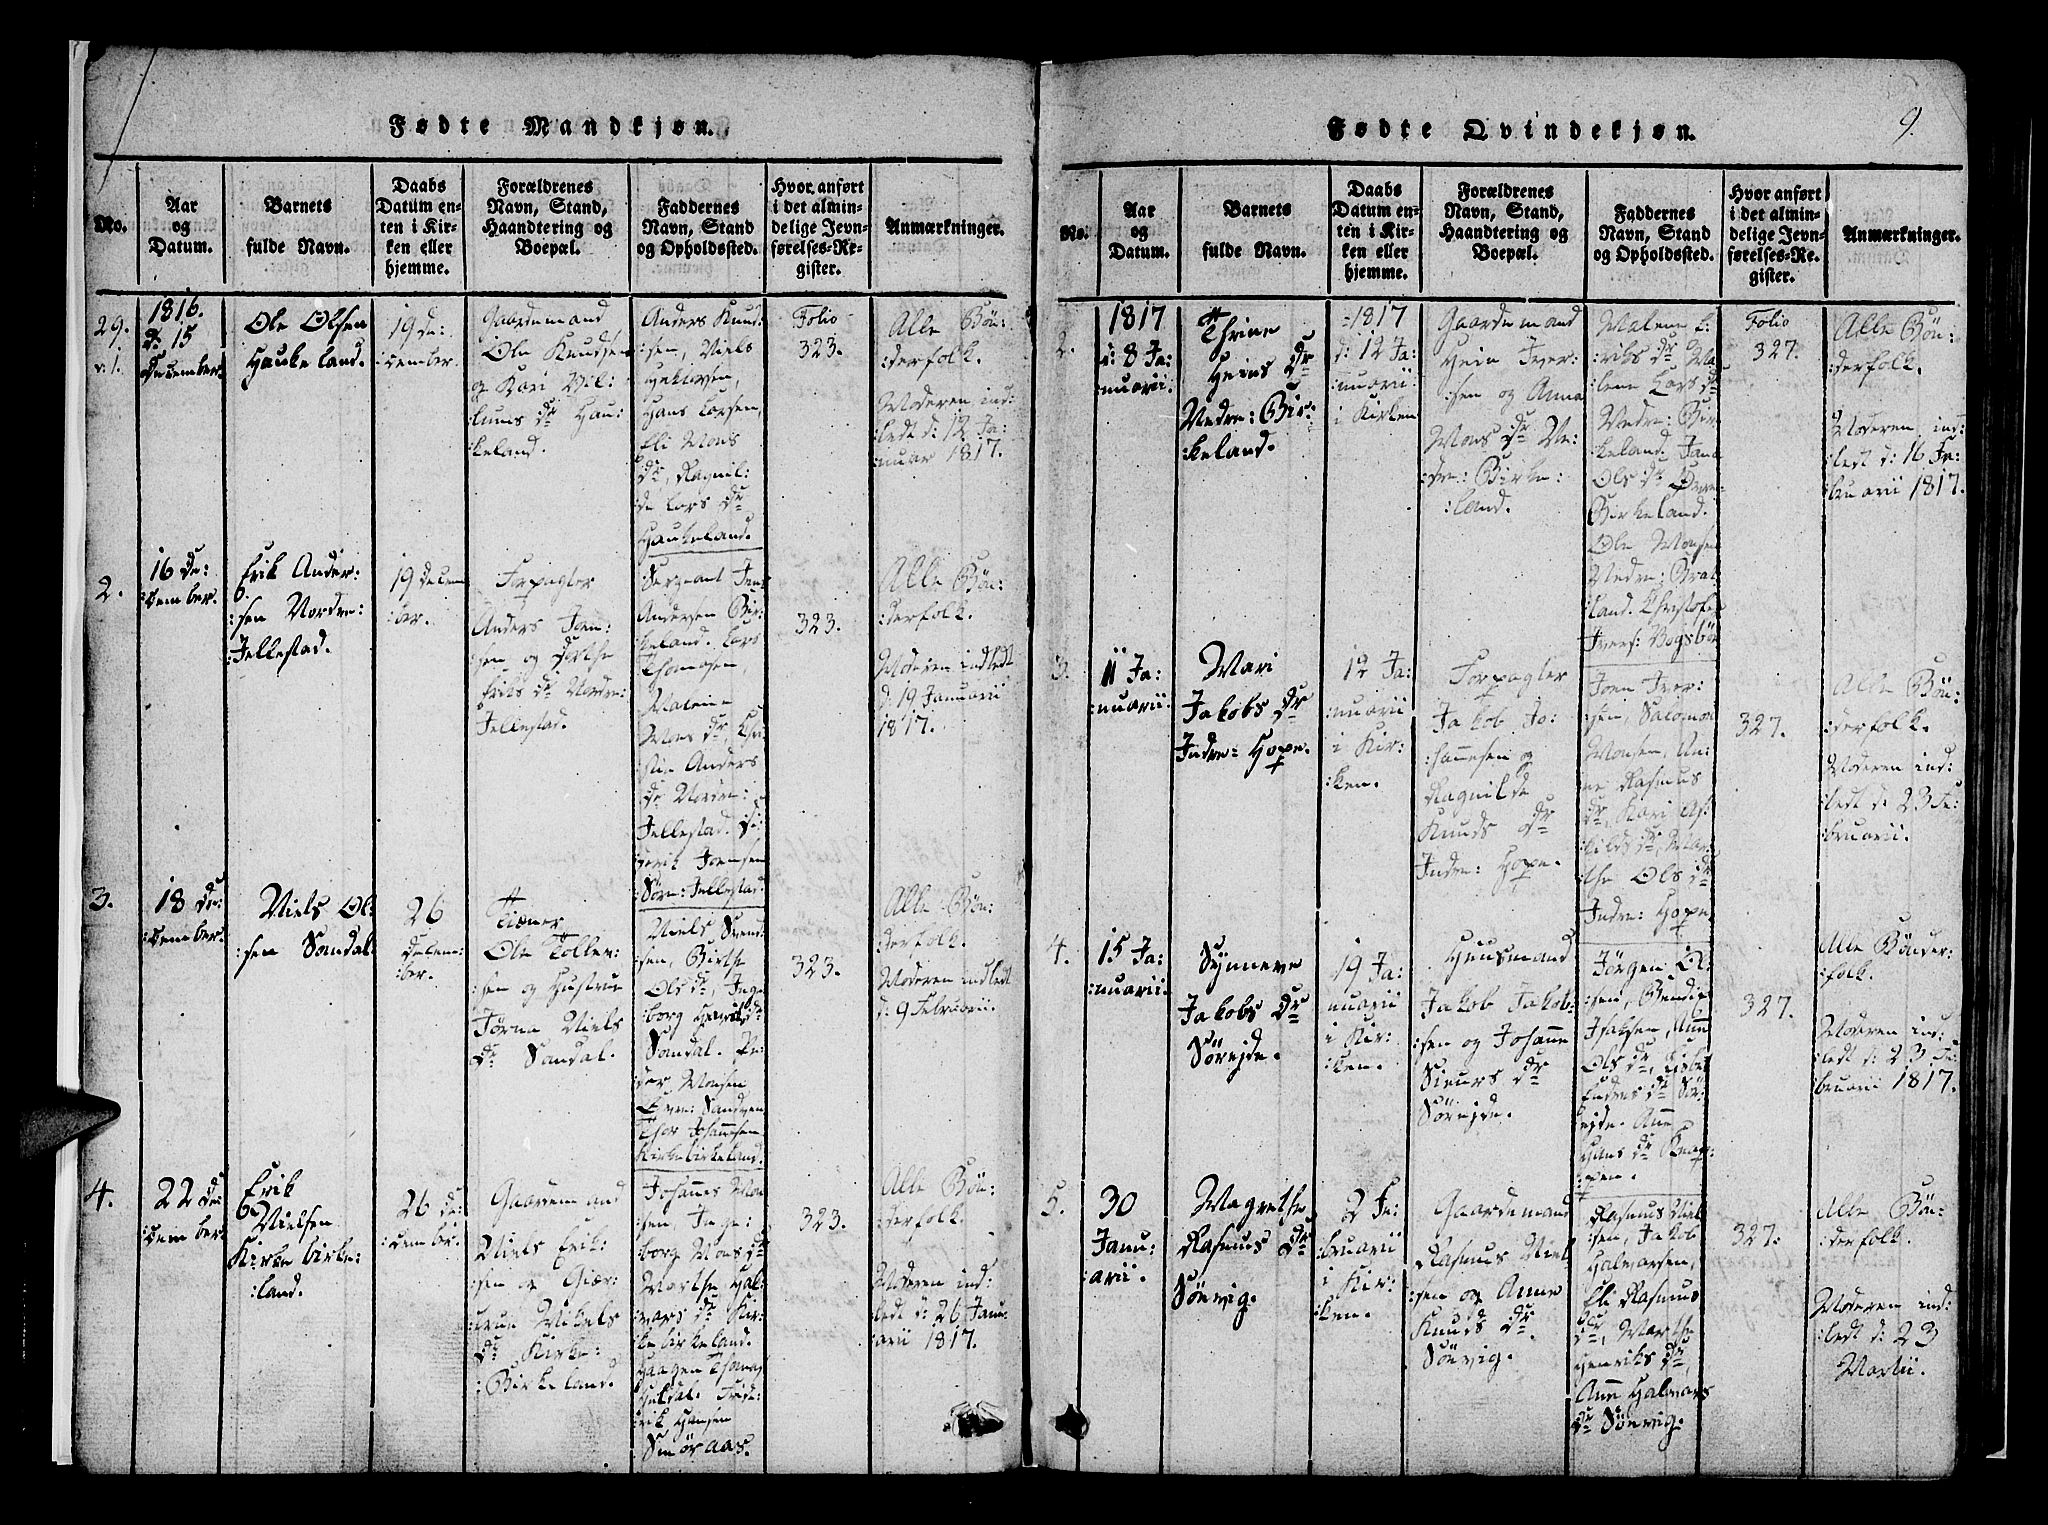 Fødte Mandkjøn.
No.
Aar
og
Datum.
Barnets
fulde Navn.
Daabs
Datum en-
ten i Kir-
ken eller
hjemme.
Forældrenes
Navn, Stand,
Haandtering og
Boepæl.
Faddernes
Navn, Stand
og Opholdssted.
Hvor anført
i det almin-
delige Jevn-
førelses-Re-
gister.
Anmærkninger.
29.
1816.
d: 15
December.
Ole Olsen
Haukeland.
19 De:
:cember.
Gaardemand
Ole Knudsen
og Kari Wil:
:lums dr Hau:
:keland.
Anders Knud:
:sen, Niels
Hans Larsen,
Eli Mons
dr, Ragnil:
:de Lars dr
Haukeland.
Folio
323.
Alle Bøn:
:derfolk.
Moderen ind:
:ledt d: 12 Ja:
:nuar 1817.
2.
16 De:
:cember.
Erik Ander:
:sen Nordre:
:Jellestad.
19 Decem
:ber.
Forpagter
Anders Joen:
:sen og Dorthe
Eriks dr Nordre:
Jellestad.
Sergeant Jens
Andersen Bir:
:keland. Lars
Thomasen,
Malene
Mons dr, Chri
:stie Anders
dr Nordre:
Jellestad. Di:
:derik Joensen
Søre: Jellestad.
323.
Alle Bøn:
:derfolk.
Moderen indledt
d: 19 Januarii
1817.
3.
18 De:
:cember.
Niels Ol:
:sen Sandal.
26
Decem:
:ber.
Ole Toller:
:sen og Hustrue
Jørna Niels
dr Sandal.
Niels Svend:
:sen, Birthe
Ols dr, Inge
:borg
Sandal. Pe:
:der Monsen
Øvre: Sandven
Thor Johannesen
Kirkebirkeland.
323.
Alle Bøn:
:derfolk.
Moderen indledt
d: 9 Februarii.
4.
22 De:
:cember.
Erik
Nielsen
Kirkebirke:
:land.
26 De:
:cember.
Gaardemand
Niels Erik:
:sen og Giær:
:true Mikels
dr Kirke:
:Birkeland.
Johannes Mon
:sen, Inge:
:borg Mons dr
Marthe Hal:
:vars dr Kir:
:kebirkeland.
Haagen Thomas
Huldal. Fride:
:rik Hansen
Smøraas.
323.
Alle Bøn:
:derfolk.
Moderen ind:
:ledt d: 26 Janu
:arii 1817.
Fødte Qvindekjøn.
9.
No.
Aar
og
Datum.
Barnets
fulde Navn.
Daabs
Datum en-
ten i Kir-
ken eller
hjemme.
Forældrenes
Navn, Stand,
Haandtering og
Boepæl.
Faddernes
Navn, Stand
og Opholdssted.
Hvor anført
i det almin-
delige Jevn-
førelses-Re-
gister.
Anmærkninger.
2.
1817
d: 8 Ja:
:nuarii.
Thrine
Heins dr
Nedre: Bir:
:keland.
1817
d: 12 Ja:
:nuarii
i Kirken
Gaardemand
Hein Iver:
:sen og Anna
Mons dr Ne:
:dre: Birke:
:land.
Malene E:
:riks dr Ma
:lene Lars dr
Nedre: Bir
:keland. Jana
Ols dr Øvre:
Birkeland.
Ole Monsen
Nedre: Brat
:land. Christofer
Ivers: Bogsbøe
Folio
327.
Alle Bøn:
:derfolk.
Moderen ind:
:ledt d: 16 Fe:
:bruarii 1817.
3.
11 Ja:
:nuarii.
Mari
Jakobs dr
Indre: Hope.
12 Ja:
:nuarii
i Kir:
:ken.
Forpagter
Jakob Jo:
:hannesen og
Ragnilde
Knuds dr
Indre: Hope.
Joen Iver:
:sen, Salomon
Monsen, An:
:ne Rasmus
dr, Kari As:
:kilds dr, Mar:
:the Ols dr
Indre: Hope.
327.
Alle Bøn:
:derfolk.
Moderen ind:
:ledt d: 23 Fe:
:bruarii.
4.
15 Ja:
:nuarii.
Synneve
Jakobs dr
Sørejde.
19 Ja:
:nuarii
i Kir:
:ken.
Huusmand
Jakob Jakob:
:sen og Johanne
Sieurs dr
Sørejde.
Jørgen Ol:
:sen, Bendix
Isaksen, Anne
Ols dr, Lisbet
Enders dr Sør:
:ejde. Anne
Hans dr Knap:
:pen.
327.
Alle Bønder:
:folk.
Moderen ind:
:ledt d: 23 Fe:
:bruarii 1817.
5.
30
Janu:
:arii.
Magrethe
Rasmus dr
Sørvig.
2 Fe:
:bruarii
i Kir:
:ken.
Gaardemand
Rasmus Niel
:sen og Anne
Knuds dr
Sørvig.
Rasmus Niel
:sen, Jakob
Halvarsen,
Eli Rasmus
dr, Marthe
Henriks dr,
Anne Halvars
dr Sørvig.
327.
Alle Bøn:
:derfolk.
Moderen ind:
:ledt d: 23
Martii.